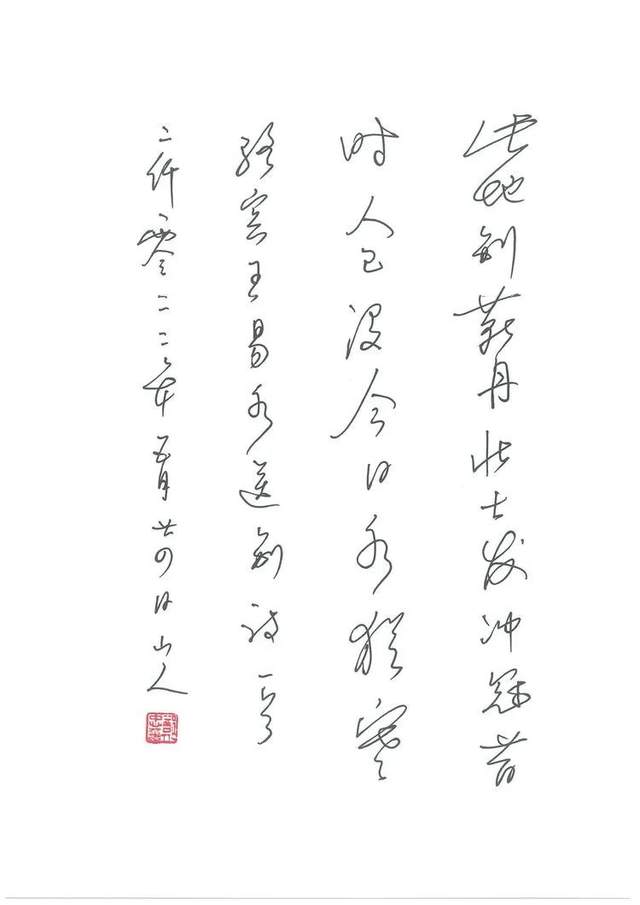 此地别燕丹壮士发冲冠昔
时人已没今日水犹寒
骆宾王易水送别诗一首
二仟零二二年五月廿四日山人